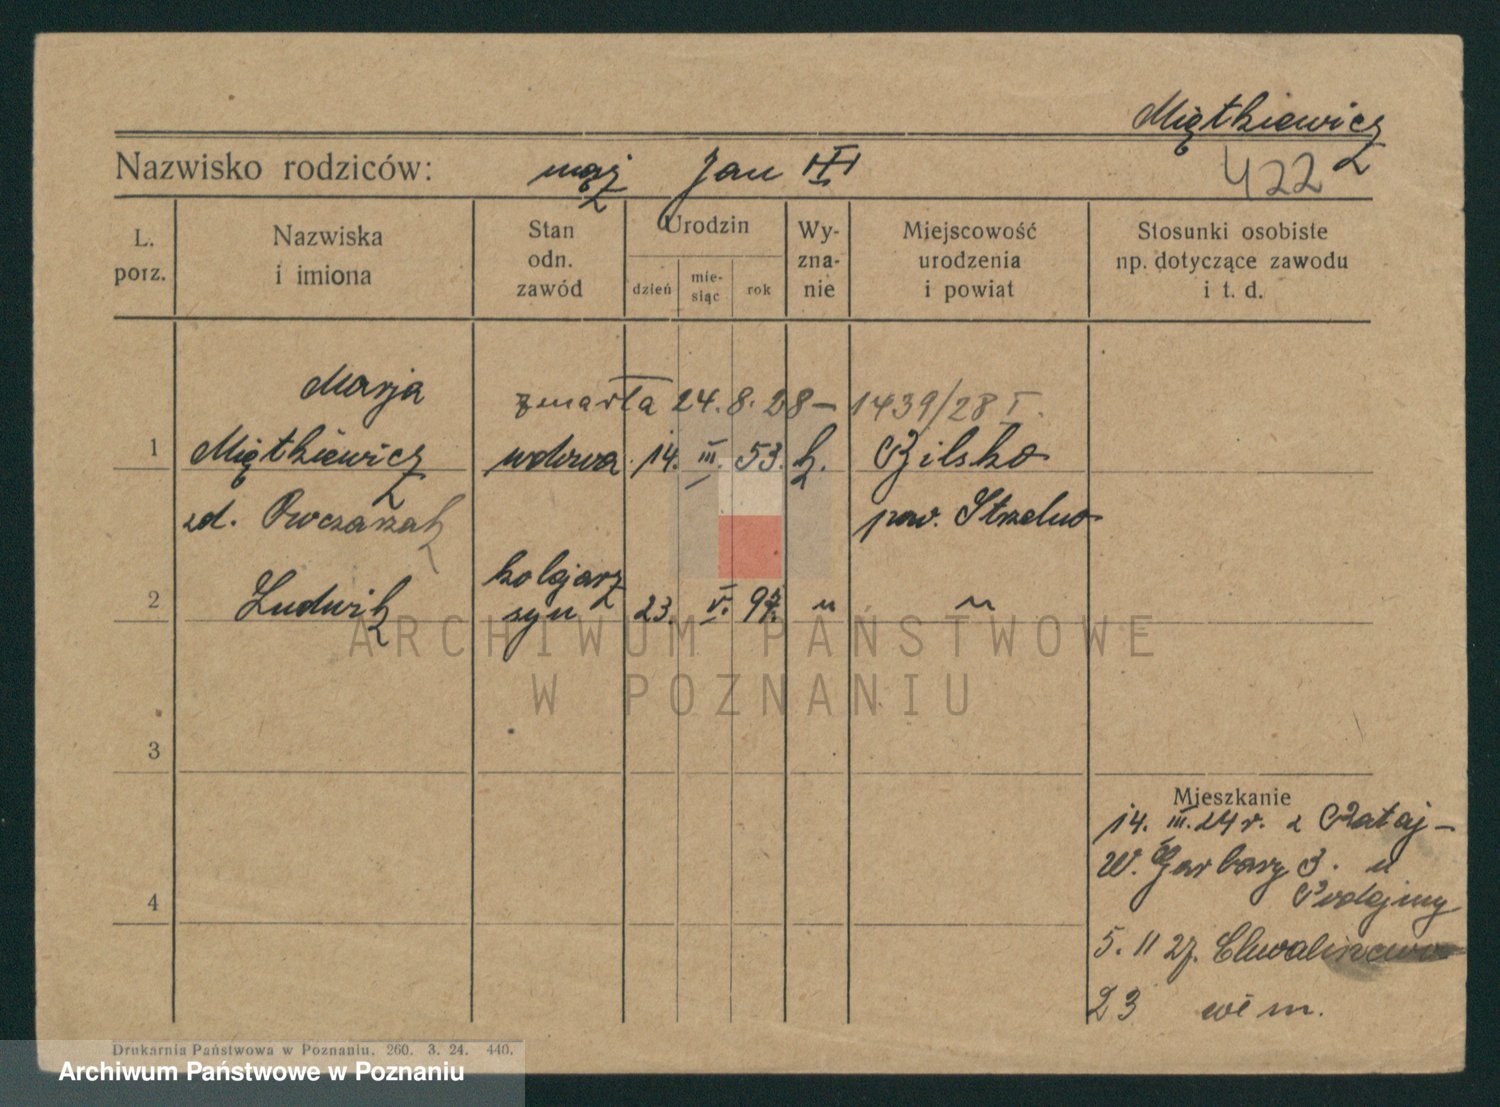 Miętkiewicz
Nazwisko rodziców: mąż Jan III
422
L. porz.
Nazwiska i imiona
Stan odn. zawód
Urodzin
dzień
mie-
siąc
rok
Wy-
zna-
nie
Miejscowość
urodzenia
i powiat
Stosunki osobiste
np. dotyczące zawodu
i t. d.
Marja
zmarła 24.8.28 – 1439/28 I.
1 Miętkiewicz wdowa 14. III. 53. k.
zd. Owczarzak pow. Strzelno
kolejarz
2 Ludwik syn 23. V. 97. " "
ARCHIWUM PAŃSTWOWE
W POZNANIU
3
Mieszkanie
14. III. 24 r. z Rataj –
W. Garbary 3. u
4
5. 11 27. Chwaliszewo
23 wć m.
Drukarnia Państwowa w Poznaniu. 260. 3. 24. 440.
Archiwum Państwowe w Poznaniu